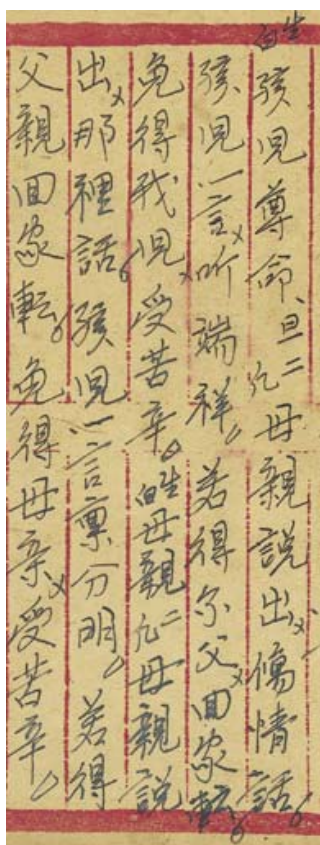 生白孩児尊命、旦二母親説出×傷情話。
孩児一言×听端祥。若得尔父×回家転。
免得我児×受苦辛。生白母親二母親説
出×那裡話。孩児一言禀分明。若得
父親回家転。免得母亲×受苦辛。